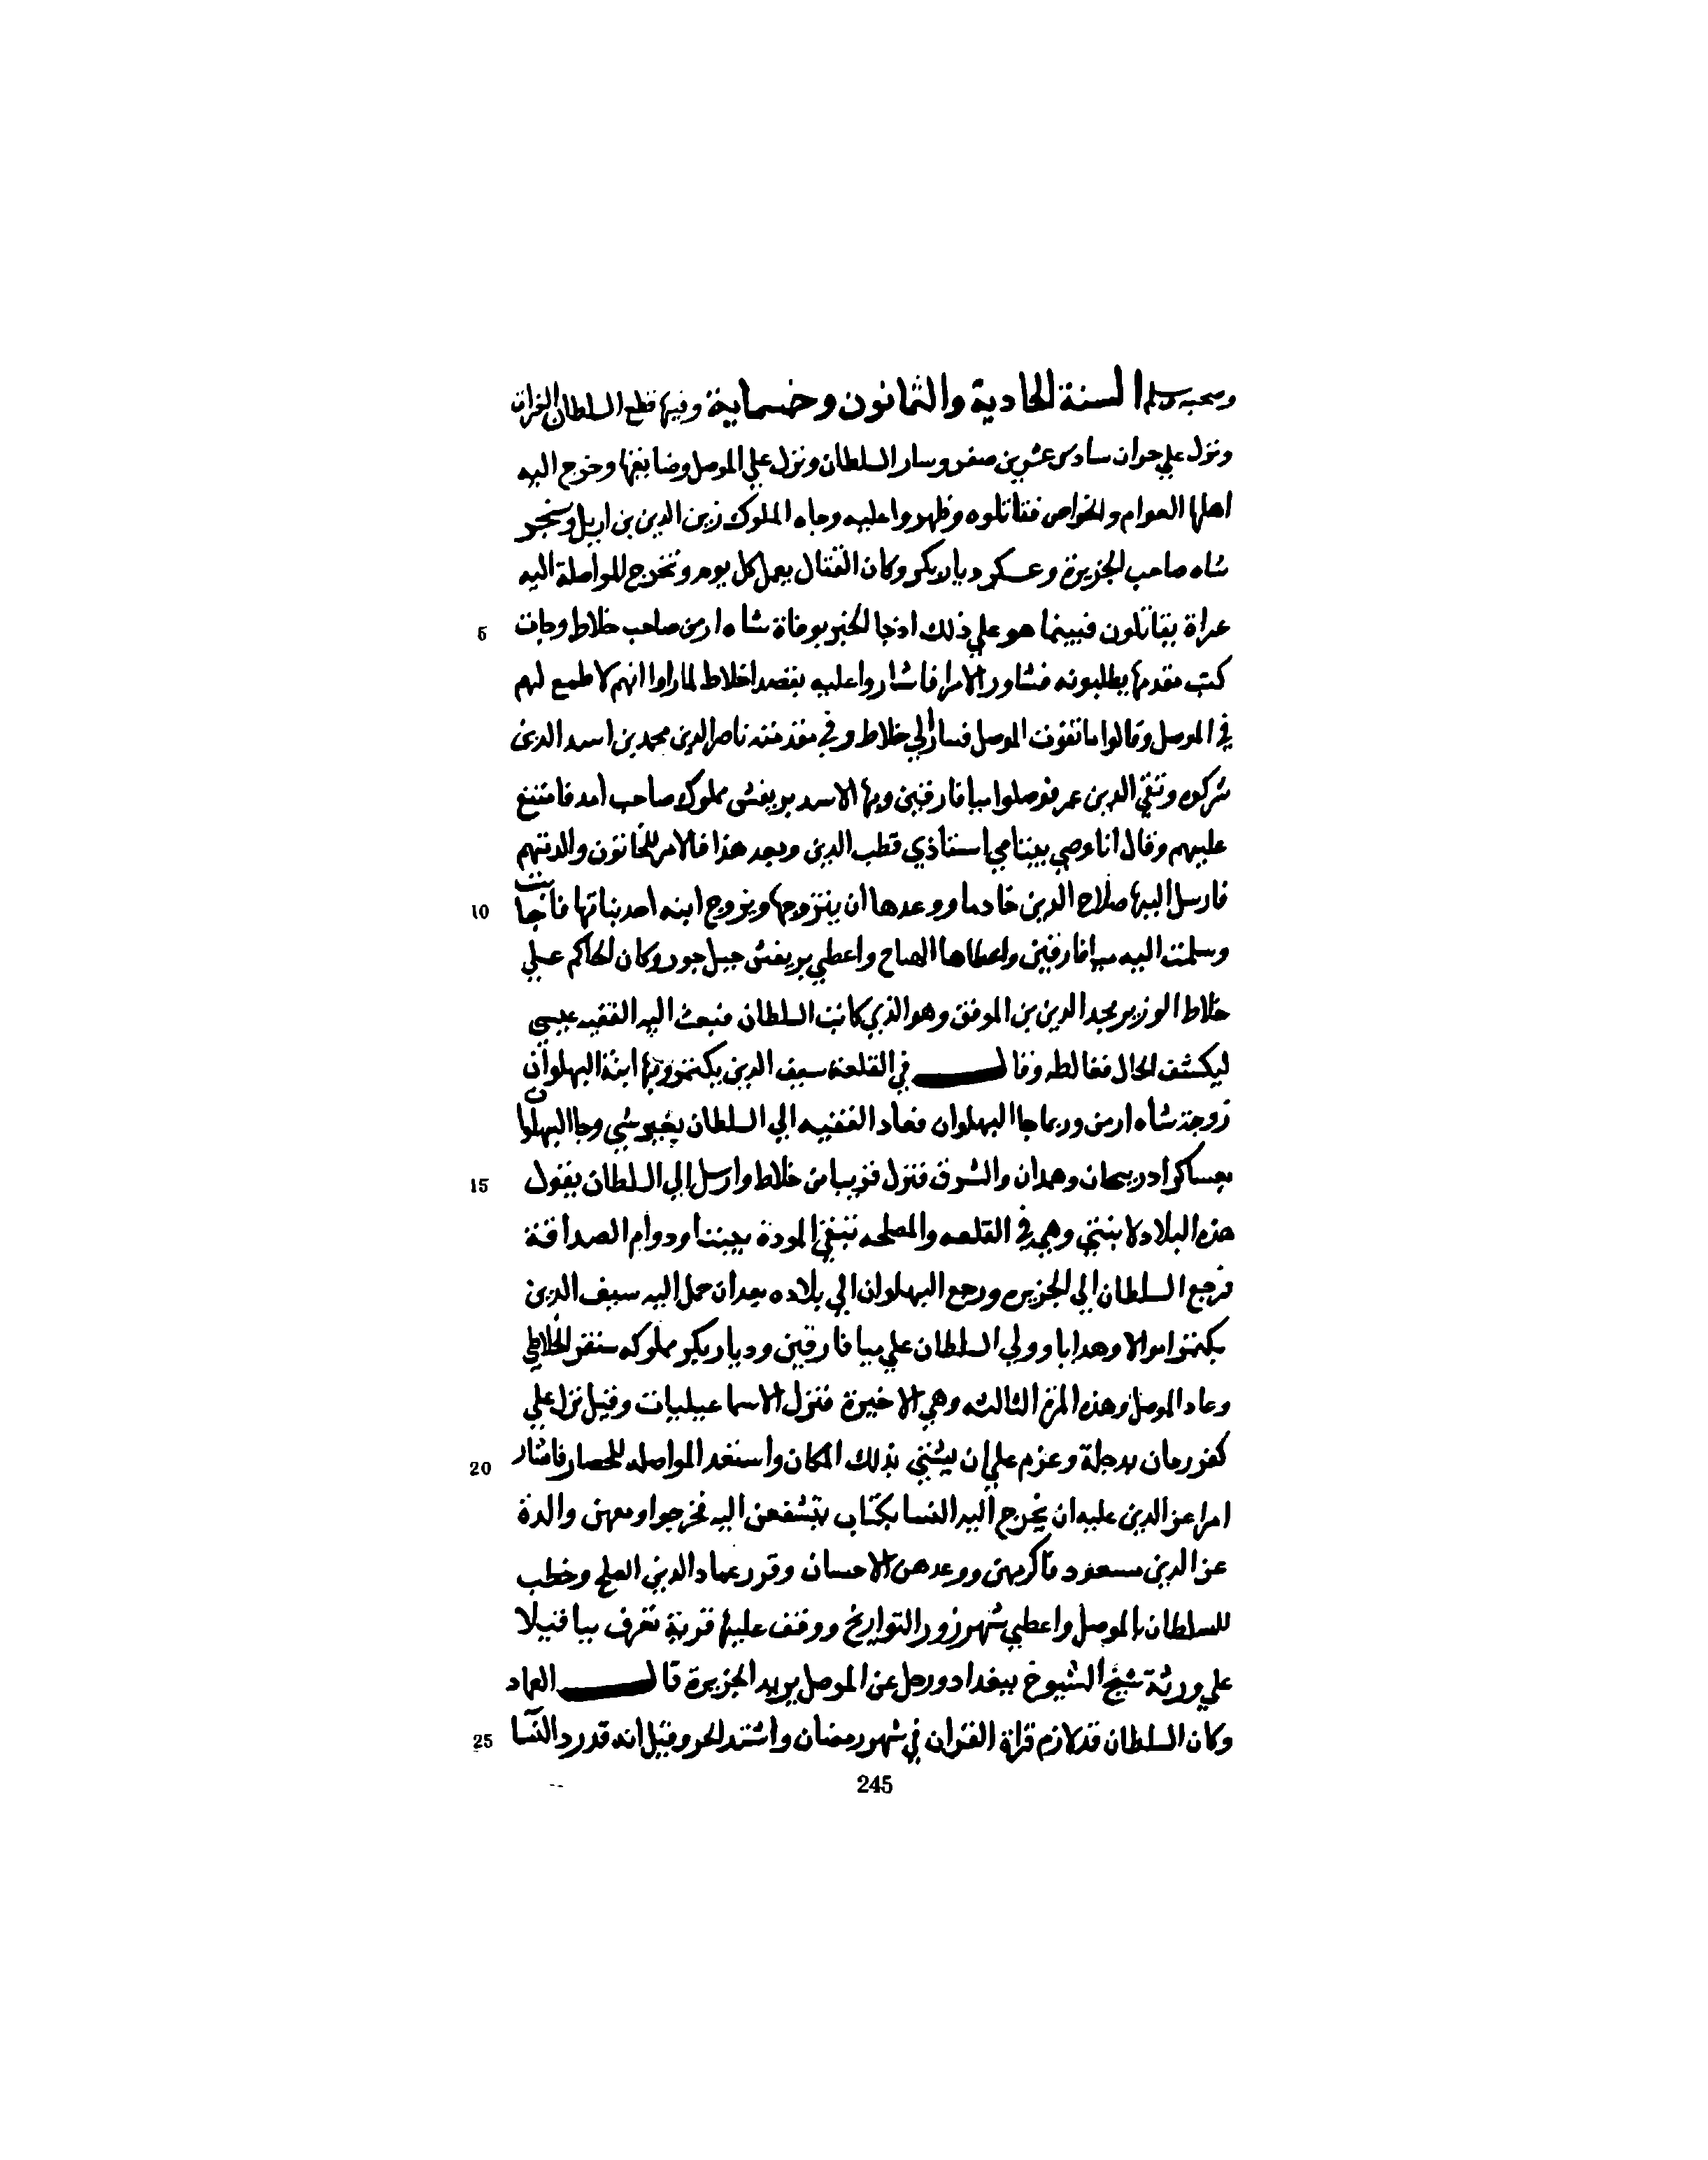 وصحبه وسلم السنة الحادية والثمانون وخمسماية وفيها قطع السلطان الفرات
ونزل علي حران سادس عشرين صفر وسار السلطان ونزل علي الموصل وضايقها وخرج اليه
اهلها العوام والخواص فقاتلوه وظهروا عليه وجاه الملوك زين الدين بن اربل وسنجر
شاه صاحب الجزيرة وعسكر ديار بكر وكان القتال يعمل كل يوم وتخرج المواصلة اليه
عراة يقاتلون فبينما هو علي ذلك اذ جا الخبر بوفاة شاه ارمن صاحب خلاط وجات 5
كتب مقدمها يطلبونه فشاور الامرا فاشاروا عليه بقصد اخلاط لما راوا انهم لا طمع لهم
في الموصل وقالوا ما تفوت الموصل فسار الي خلاط وفي مقدمته ناصر الدين محمد بن اسد الدين
شركوه وتقي الدين عمر فوصلوا ميا فارقين وبها الاسد بريقش مملوك صاحب امد فامتنع
عليهم وقال انا وصي بيتامي استاذي قطب الدين وبعد هذا فالامر للخاتون والدتهم
فارسل اليها صلاح الدين خادما ووعدها ان يتزوجها ويزوج ابنه احد بناتها فاجابت 10
وسلمت اليه ميا فارقين واعطاها الهتاح واعطي بريقش جبل جور وكان الحاكم علي
خلاط الوزير مجد الدين بن الموفق وهو الذي كاتب السلطان فبعث اليه الفقيه عيسي
ليكشف الحال فغالطه وقال في القلعة سيف الدين بكتمر وبها ابنة البهلوان
زوجة شاه ارمن وربما جا البهلوان فعاد الفقيه الي السلطان بغير شي وجا البهلوان
بعساكر ادربيجان وهمدان والشرق فنزل قريبا من خلاط وارسل الي السلطان يقول 15
هذه البلاد لا بنتي وهي في القلعه والمصلحه تبقي المودة بيننا ودوام الصداقة
فرجع السلطان الي الجزيره ورجع البهلوان الي بلاده بعد ان حمل اليه سيف الدين
بكتمر اموالا وهدايا وولي السلطان علي ميا فارقين وديار بكر مملوكه سنقر الخلاطي
وعاد الموصل وهذه المرة الثالثه وهي الاخيرة فنزل الاسماعيليات وقيل نزل علي
كفر رمان بدجلة وعزم علي ان يشتي بذلك المكان واستعد المواصله للحصار فاشار 20
امرا عز الدين عليه ان يخرج اليه النسا بكتاب يتشفعن اليه فخرجوا ومعهن والدة
عز الدين مسعود فاكرمهن ووعدهن الاحسان وقرر عماد الدين الصلح وخطب
للسلطان بالموصل واعطي شهرزور التواريخ ووقف عليها قرية تعرف بباقيلا
علي ورثة شيخ الشيوخ ببغداد ورحل عن الموصل يريد الجزيرة قال العماد
وكان السلطان قد لازم قراة القران في شهر رمضان واشتد الحر وقيل انه قد رد النسا 25
245